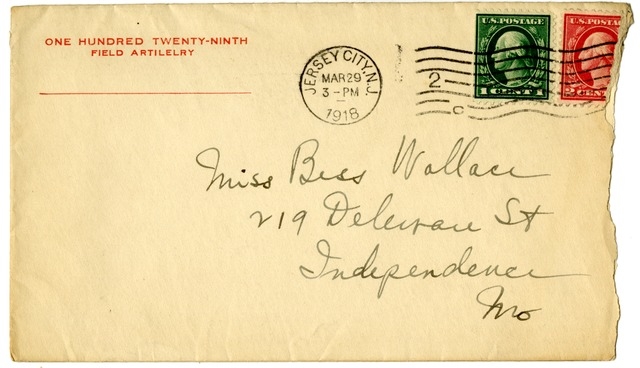 ONE HUNDRED TWENTY-NINTH
FIELD ARTILELRY
JERSEY CITY, N.J.
MAR 29
3 - PM
1918
2
C
U.S. POSTAGE
1 CENT 1
U.S. POSTA
2 CENT
Miss Bess Wallace
219 Deleware St
Independence
Mo